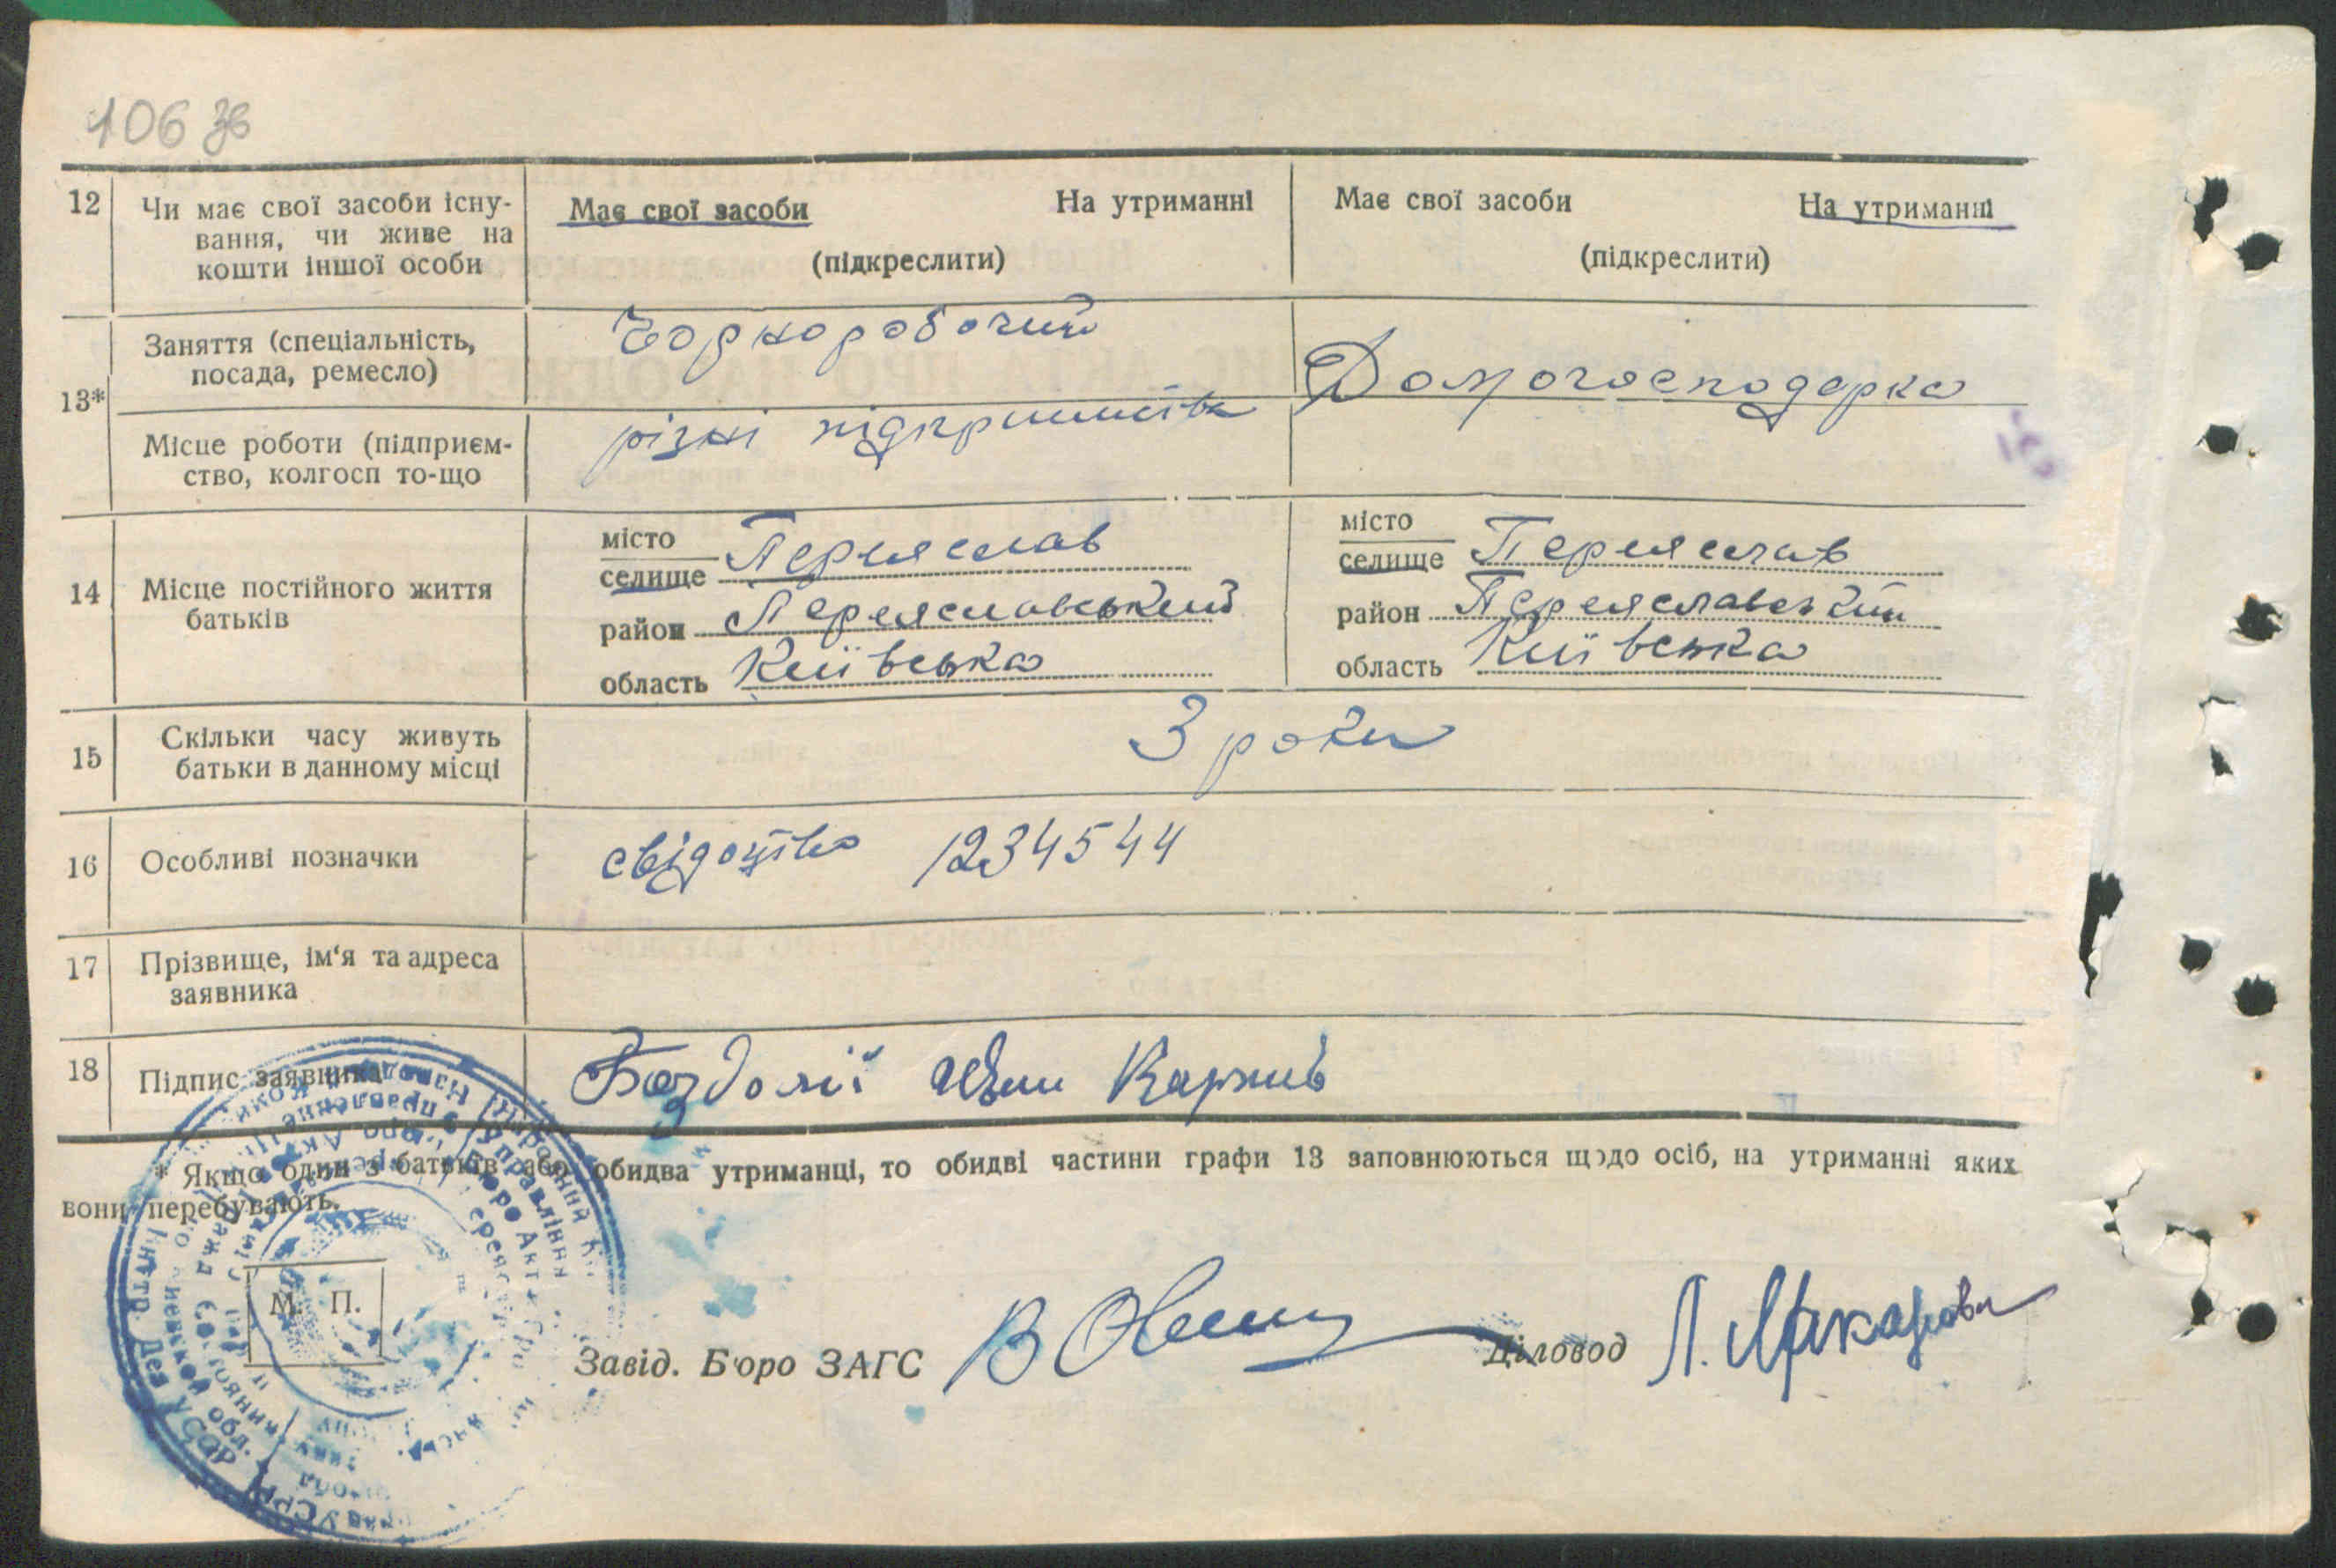 106 зв
12 Чи має свої засоби існу-
вання, чи живе на
кошти іншої особи
Має свої засоби На утриманні
(підкреслити)
Має свої засоби На утриманні
(підкреслити)
13*
Заняття (спеціальність,
посада, ремесло)
Чорноробочий
Домогосподарка
Місце роботи (підприєм-
ство, колгосп то-що
різні підприємства
14 Місце постійного життя
батьків
місто
селище Переяслав
район Переяславський
область Київська
місто
селище Переяслав
район Переяславський
область Київська
15 Скільки часу живуть
батьки в данному місці
3 роки
16 Особливі позначки
свідоцтво 1234544
17 Прізвище, ім'я та адреса
заявника
18 Підпис заявника
* Якщо один з батьків або обидва утриманці, то обидві частини графи 13 заповнюються щодо осіб, на утриманні яких
вони перебувають.
М. П.
Завід. Бюро ЗАГС
Діловод Л. Макарова